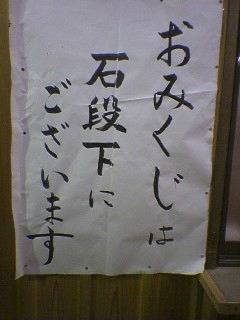 おみくじは
石段下に
ございます